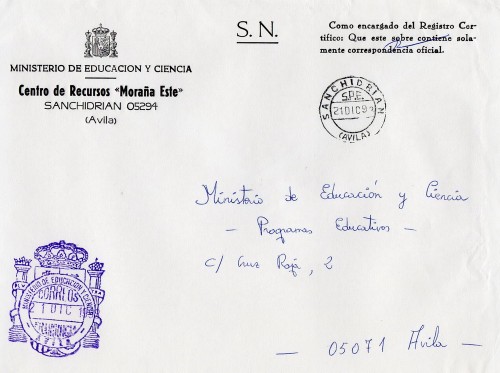 MINISTERIO DE EDUCACION Y CIENCIA
Centro de Recursos «Moraña Este»
SANCHIDRIAN 05294
(Avila)
S. N.
Como encargado del Registro Cer-
tifico: Que este sobre contiene sola-
mente correspondencia oficial.
SANCHIDRIAN
S.P.E.
21 DIC 9
(AVILA)
Ministerio de Educación y Ciencia
- Programas Educativos -
C/ Cruz Roja, 2
- 05071 Avila -
MINISTERIO DE EDUCACION Y CIENCIA
CORREOS
1 DIC 1
AVILA